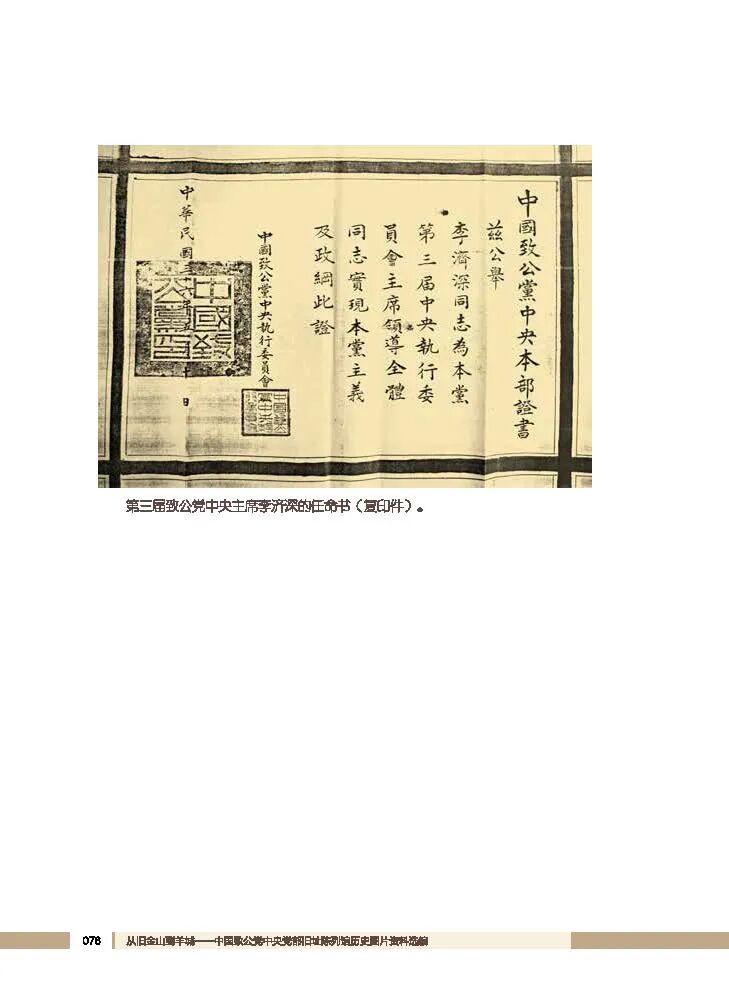 中國致公黨中央本部證書
茲公舉
李濟深同志為本黨
第三届中央執行委
員會主席領導全體
同志實現本黨主義
及政綱此證
中國致公黨中央執行委員會
中華民國三十六年五月十日
第三届致公党中央主席李济深的任命书（复印件）。
076
从旧金山到羊城——中国致公党中央党部旧址陈列馆历史图片资料选编